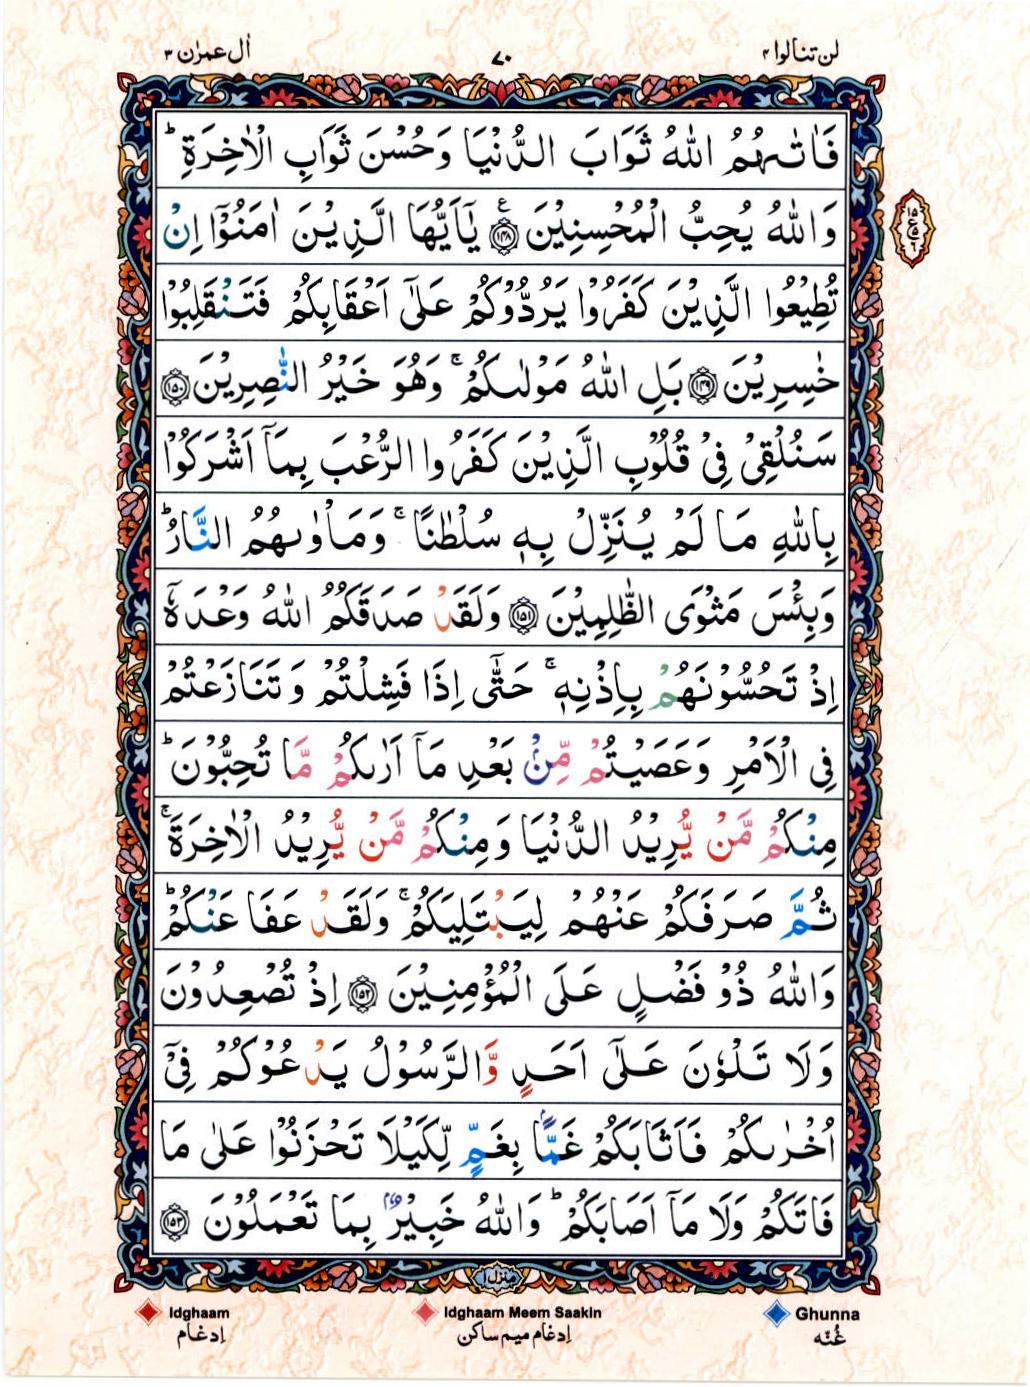 اٰل عمرٰن ۳
۷۰
لن تنالوا ۴
فَاٰتٰىهُمُ اللّٰهُ ثَوَابَ الدُّنْيَا وَحُسْنَ ثَوَابِ الْاٰخِرَةِ ؕ
وَاللّٰهُ يُحِبُّ الْمُحْسِنِيْنَ ۝۱۴۸ ع يٰٓاَيُّهَا الَّذِيْنَ اٰمَنُوْٓا اِنْ
تُطِيْعُوا الَّذِيْنَ كَفَرُوْا يَرُدُّوْكُمْ عَلٰٓى اَعْقَابِكُمْ فَتَنْقَلِبُوْا
خٰسِرِيْنَ ۝۱۴۹ بَلِ اللّٰهُ مَوْلٰىكُمْ ۚ وَهُوَ خَيْرُ النّٰصِرِيْنَ ۝۱۵۰
سَنُلْقِيْ فِيْ قُلُوْبِ الَّذِيْنَ كَفَرُوا الرُّعْبَ بِمَآ اَشْرَكُوْا
بِاللّٰهِ مَا لَمْ يُنَزِّلْ بِهٖ سُلْطٰنًا ۚ وَمَاْوٰىهُمُ النَّارُ ؕ
وَبِئْسَ مَثْوَى الظّٰلِمِيْنَ ۝۱۵۱ وَلَقَدْ صَدَقَكُمُ اللّٰهُ وَعْدَهٗٓ
اِذْ تَحُسُّوْنَهُمْ بِاِذْنِهٖ ۚ حَتّٰٓى اِذَا فَشِلْتُمْ وَتَنَازَعْتُمْ
فِى الْاَمْرِ وَعَصَيْتُمْ مِّنْۢ بَعْدِ مَآ اَرٰىكُمْ مَّا تُحِبُّوْنَ ؕ
مِنْكُمْ مَّنْ يُّرِيْدُ الدُّنْيَا وَمِنْكُمْ مَّنْ يُّرِيْدُ الْاٰخِرَةَ ۚ
ثُمَّ صَرَفَكُمْ عَنْهُمْ لِيَبْتَلِيَكُمْ ۚ وَلَقَدْ عَفَا عَنْكُمْ ؕ
وَاللّٰهُ ذُوْ فَضْلٍ عَلَى الْمُؤْمِنِيْنَ ۝۱۵۲ اِذْ تُصْعِدُوْنَ
وَلَا تَلْوٗنَ عَلٰٓى اَحَدٍ وَّالرَّسُوْلُ يَدْعُوْكُمْ فِيْٓ
اُخْرٰىكُمْ فَاَثَابَكُمْ غَمًّاۢ بِغَمٍّ لِّكَيْلَا تَحْزَنُوْا عَلٰى مَا
فَاتَكُمْ وَلَا مَآ اَصَابَكُمْ ؕ وَاللّٰهُ خَبِيْرٌۢ بِمَا تَعْمَلُوْنَ ۝۱۵۳
منزل ۱
Idghaam
Idghaam Meem Saakin
Ghunna
اِدغام
اِدغام میم ساکن
غُنّه